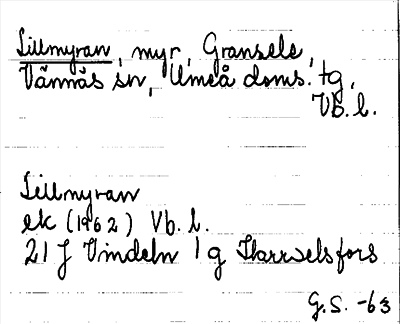 Lillmyran, myr, Gransele,
Vännäs sn, Umeå doms. tg,
Vb. l.
Lillmyran
ek (1962) Vb. l.
21 J Vindeln 1 g Harrselsfors
G.S. -63